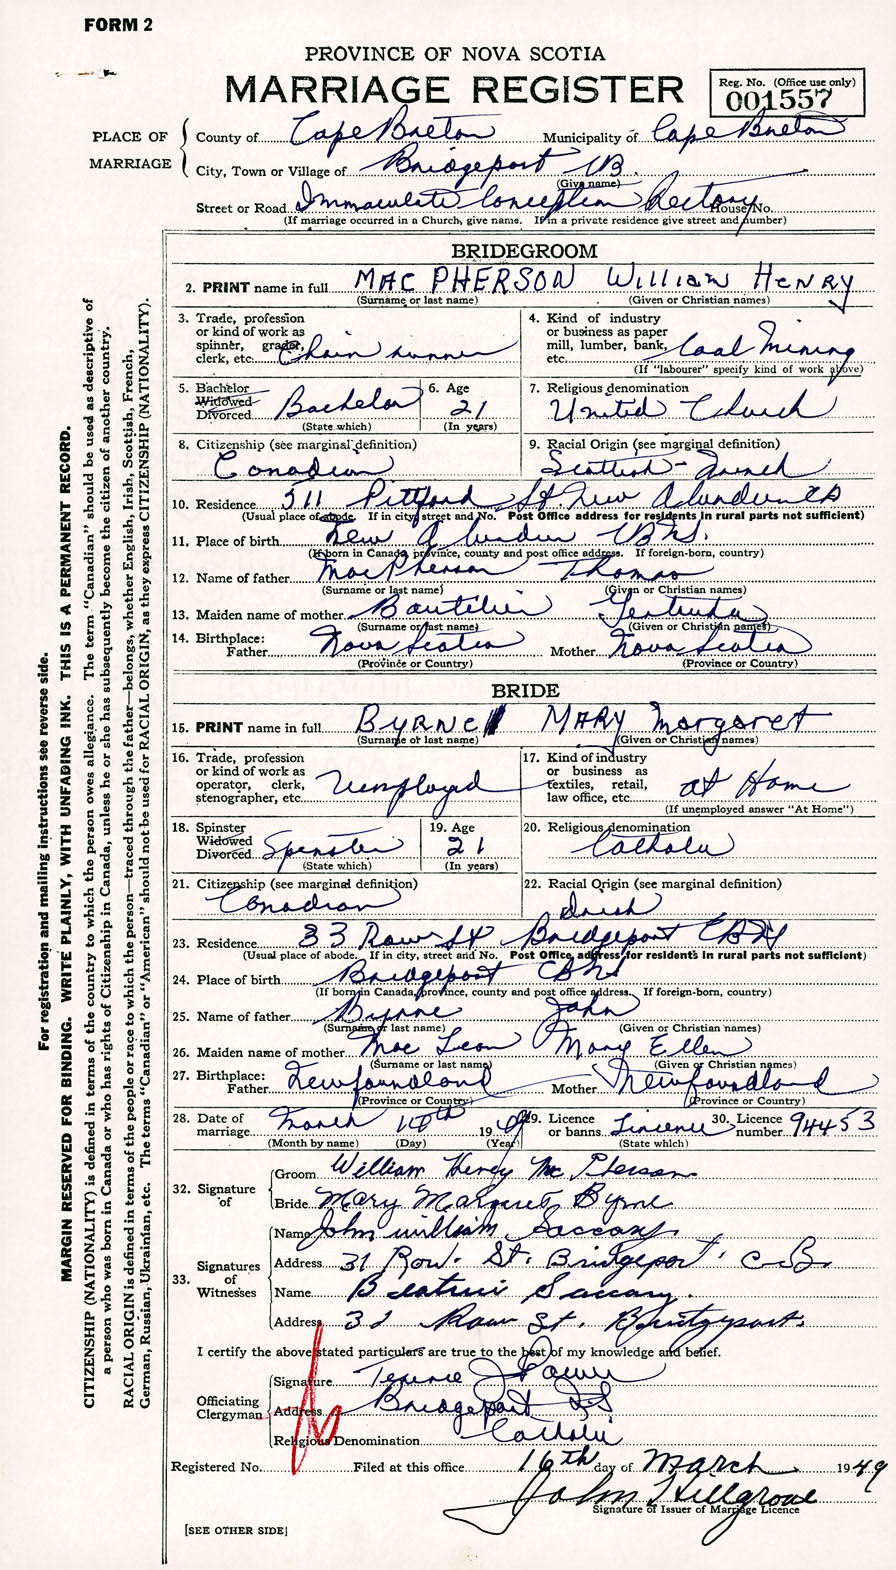 FORM 2
PROVINCE OF NOVA SCOTIA
MARRIAGE REGISTER
Reg. No. (Office use only)
001557
PLACE OF MARRIAGE
County of Cape Breton Municipality of Cape Breton
City, Town or Village of Bridgeport CB
(Give name)
Street or Road Immaculate Conception Rectory House No.
(If marriage occurred in a Church, give name. If in a private residence give street and number)
BRIDEGROOM
2. PRINT name in full MACPHERSON William Henry
(Surname or last name) (Given or Christian names)
3. Trade, profession or kind of work as spinner, grader, clerk, etc. Chain runner
4. Kind of industry or business as paper mill, lumber, bank, etc. Coal Mining
(If "labourer" specify kind of work above)
5. Bachelor Widowed Divorced Bachelor
(State which)
6. Age 21
(In years)
7. Religious denomination United Church
8. Citizenship (see marginal definition) Canadian
9. Racial Origin (see marginal definition) Scottish - French
10. Residence 511 Pittford St. New
(Usual place of abode. If in city, street and No. Post Office address for residents in rural parts not sufficient)
11. Place of birth New
(If born in Canada, province, county and post office address. If foreign-born, country)
12. Name of father MacPherson Thomas
(Surname or last name) (Given or Christian names)
13. Maiden name of mother Gertrude
(Surname or last name) (Given or Christian names)
14. Birthplace:
Father Nova Scotia Mother Nova Scotia
(Province or Country) (Province or Country)
BRIDE
15. PRINT name in full BYRNE MARY Margaret
(Surname or last name) (Given or Christian names)
16. Trade, profession or kind of work as operator, clerk, stenographer, etc. Unemployed
17. Kind of industry or business as textiles, retail, law office, etc. at Home
(If unemployed answer "At Home")
18. Spinster Widowed Divorced Spinster
(State which)
19. Age 21
(In years)
20. Religious denomination Catholic
21. Citizenship (see marginal definition) Canadian
22. Racial Origin (see marginal definition) Irish
23. Residence 33 Row St Bridgeport CBNS
(Usual place of abode. If in city, street and No. Post Office address for residents in rural parts not sufficient)
24. Place of birth Bridgeport CBNS
(If born in Canada, province, county and post office address. If foreign-born, country)
25. Name of father Byrne John
(Surname or last name) (Given or Christian names)
26. Maiden name of mother MacLean Mary Ellen
(Surname or last name) (Given or Christian names)
27. Birthplace:
Father Newfoundland Mother Newfoundland
(Province or Country) (Province or Country)
28. Date of marriage March 14th 1949
(Month by name) (Day) (Year)
29. Licence or banns Lincence
(State which)
30. Licence number 94453
32. Signature of
Groom William Henry McPherson
Bride Mary Margaret Byrne
33. Signatures of Witnesses
Name John william Saccary
Address 31 Row. St. Bridgeport. C.B.
Name Saccary.
Address 31 Row St. Bridgeport.
I certify the above stated particulars are true to the best of my knowledge and belief.
Officiating Clergyman
Signature
Address Bridgeport NS
Religious Denomination Catholic
Registered No. Filed at this office 16th day of March 1949
John Hillgrove
Signature of Issuer of Marriage Licence
[SEE OTHER SIDE]
For registration and mailing instructions see reverse side.
MARGIN RESERVED FOR BINDING. WRITE PLAINLY, WITH UNFADING INK. THIS IS A PERMANENT RECORD.
CITIZENSHIP (NATIONALITY) is defined in terms of the country to which the person owes allegiance. The term "Canadian" should be used as descriptive of
a person who was born in Canada or who has rights of Citizenship in Canada, unless he or she has subsequently become the citizen of another country.
RACIAL ORIGIN is defined in terms of the people or race to which the person—traced through the father—belongs, whether English, Irish, Scottish, French,
German, Russian, Ukrainian, etc. The terms "Canadian" or "American" should not be used for RACIAL ORIGIN, as they express CITIZENSHIP (NATIONALITY).